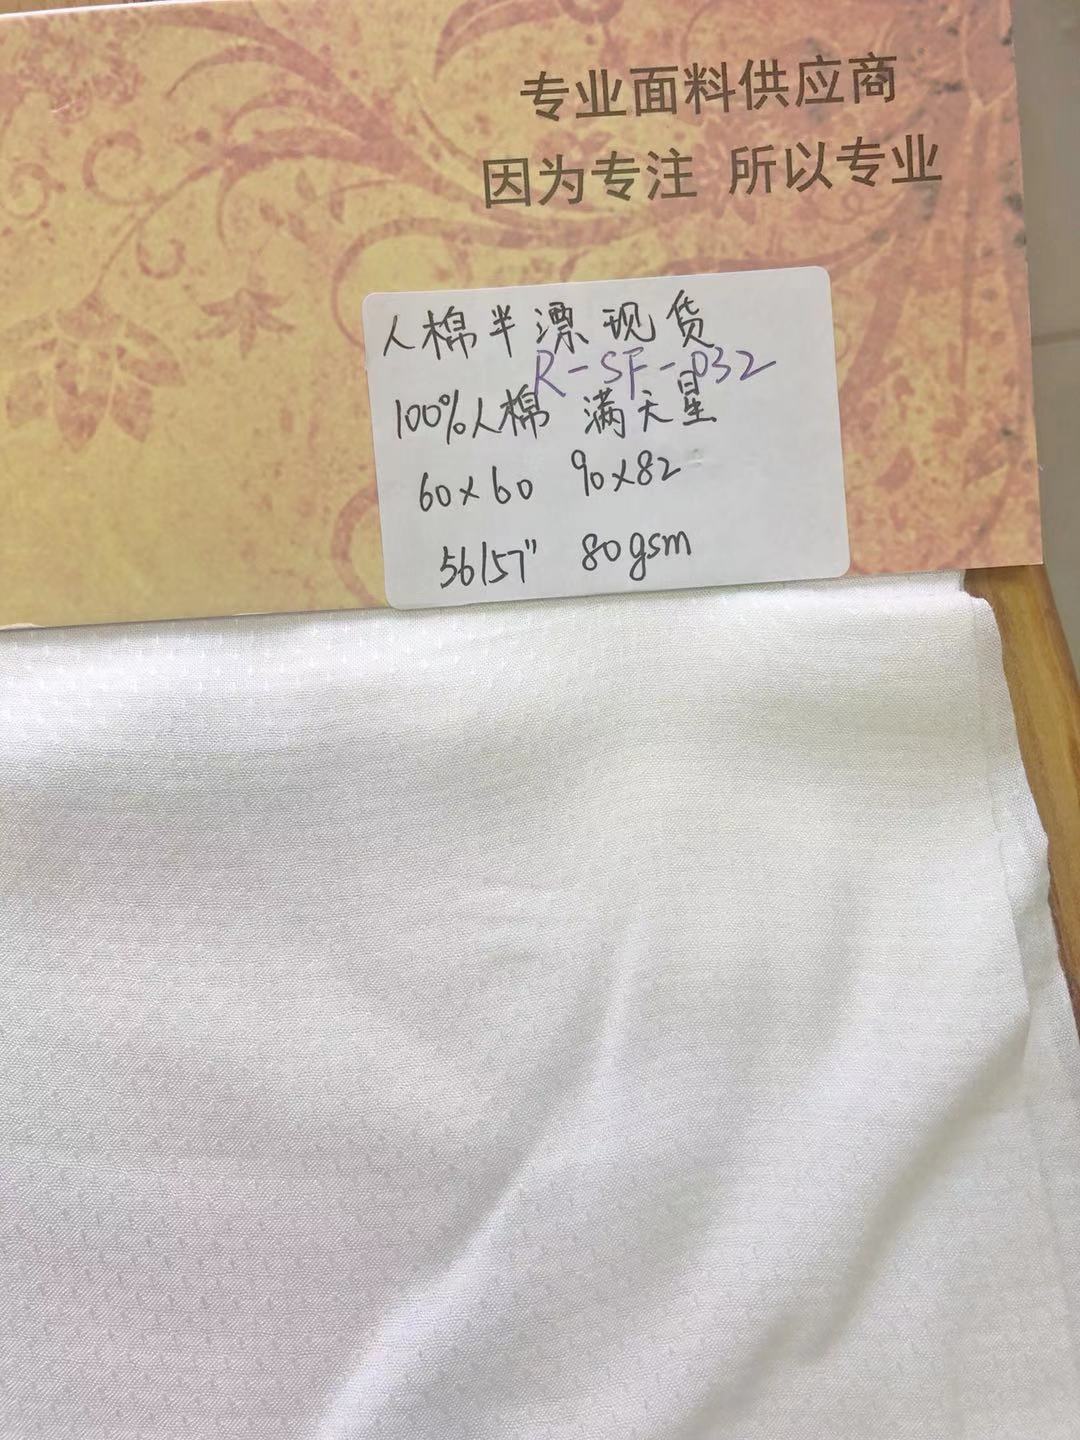 专业面料供应商
因为专注 所以专业
人棉半漂现货
R-SF-032
100%人棉 满天星
60×60 90×82
56/57" 80gsm